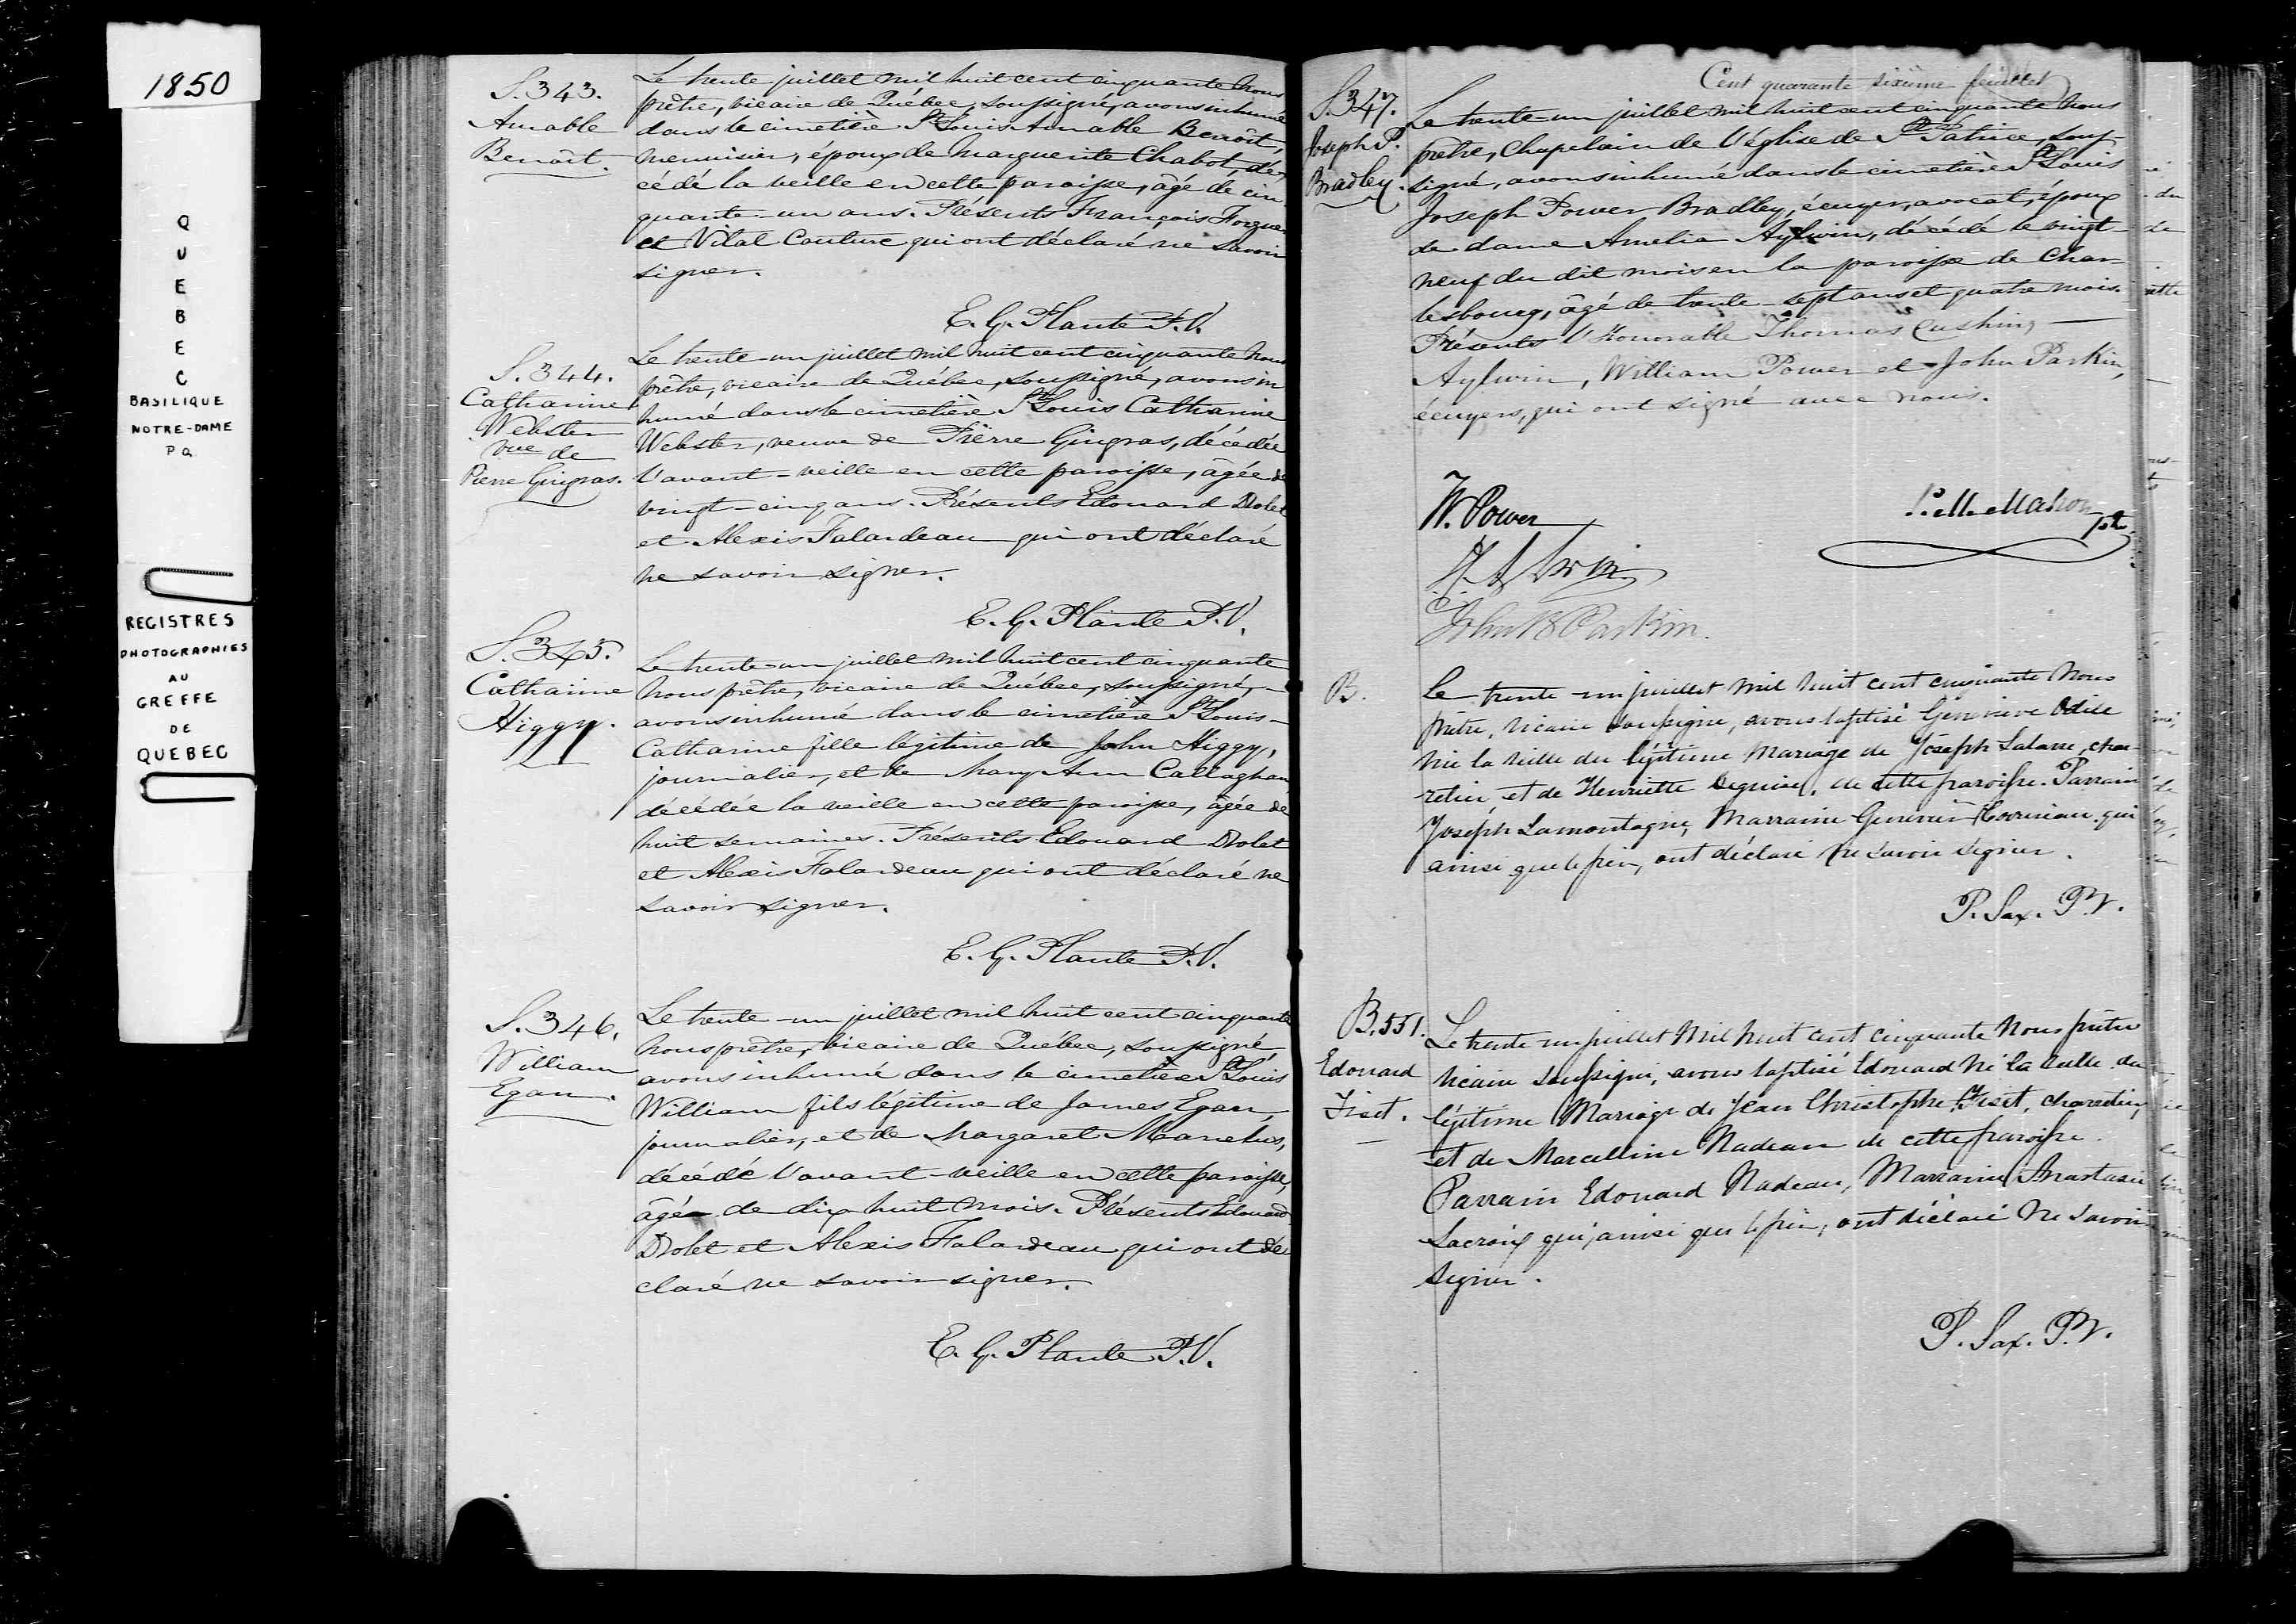 1850
QUEBEC
BASILIQUE
NOTRE-DAME
P Q
REGISTRES
PHOTOGRAPHIES
AU
GREFFE
DE
QUEBEC
S. 343.
Amable
Benoît.
Le trente juillet mil huit cent cinquante nous
prêtre, vicaire de Québec, soussigné, avons inhumé
dans le cimetière St Louis Amable Benoît,
menuisier, époux de Marguerite Chabot, dé-
cédé la veille en cette paroisse, âgé de cin-
quante-un ans. Présents François Forgues
et Vital Couture qui ont déclaré ne savoir
signer.
E. G. Plante P.V.
S. 344.
Catharine
Webster
vve de
Pierre Gingras.
Le trente-un juillet mil huit cent cinquante nous
prêtre, vicaire de Québec, soussigné, avons in
humé dans le cimetière St Louis Catharine
Webster, veuve de Pierre Gingras, décédée
l'avant-veille en cette paroisse, âgée de
vingt-cinq ans. Présents Edouard Drolet
et Alexis Falardeau qui ont déclaré
ne savoir signer.
E. G. Plante P.V.
S. 345.
Catharine
Higgy.
Le trente-un juillet mil huit cent cinquante
nous prêtre, vicaire de Québec, soussigné,
avons inhumé dans le cimetière St Louis
Catharine fille légitime de John Higgy,
journalier, et de Mary Ann Callaghan
décédée la veille en cette paroisse, âgée de
huit semaines. Présents Edouard Drolet
et Alexis Falardeau qui ont déclaré ne
savoir signer.
E. G. Plante P.V.
S. 346.
William
Egan.
Le trente-un juillet mil huit cent cinquante
nous prêtre, vicaire de Québec, soussigné
avons inhumé dans le cimetière St Louis
William fils légitime de James Egan,
journalier, et de Margaret
décédé l'avant-veille en cette paroisse,
âgé de dix huit mois. Présents Edouard
Drolet et Alexis Falardeau qui ont dé
claré ne savoir signer.
E. G. Plante P.V.
Cent quarante sixième feuillet
S. 347.
Joseph P.
Bradley.
Le trente-un juillet mil huit cent cinquante nous
prêtre, chapelain de l'église de St Patrice, sous-
signé, avons inhumé dans le cimetière St Louis
Joseph Power Bradley, écuyer, avocat, époux
de dame Amelia Aylwin, décédé le vingt-
neuf du dit mois en la paroisse de Char-
lesbourg, âgé de trente-sept ans et quatre mois.
Présents l'Honorable Thomas Cushing
Aylwin, William Power et John Parkin,
écuyers, qui ont signé avec nous.
W. Power
P. McMahon ptre
John B Parkin.
B.
Le trente-un juillet mil huit cent cinquante nous
prêtre, vicaire soussigné, avons baptisé Géneviève Odile
née la veille du légitime mariage de Joseph char-
retier, et de Henriette de cette paroisse. Parrain
Joseph Lamontagne, Marraine Geneviève qui
ainsi que le père, ont déclaré ne savoir signer.
P. Sax. P.V.
B. 551.
Edouard
Fiset.
Le trente-un juillet mil huit cent cinquante nous prêtre
vicaire soussigné, avons baptisé Edouard né la veille du
légitime mariage de Jean Christophe Fiset, charretier,
et de Marcelline Nadeau de cette paroisse.
Parrain Edouard Nadeau, Marraine Anastasie
Lacroix qui, ainsi que le père, ont déclaré ne savoir
signer.
P. Sax. P.V.